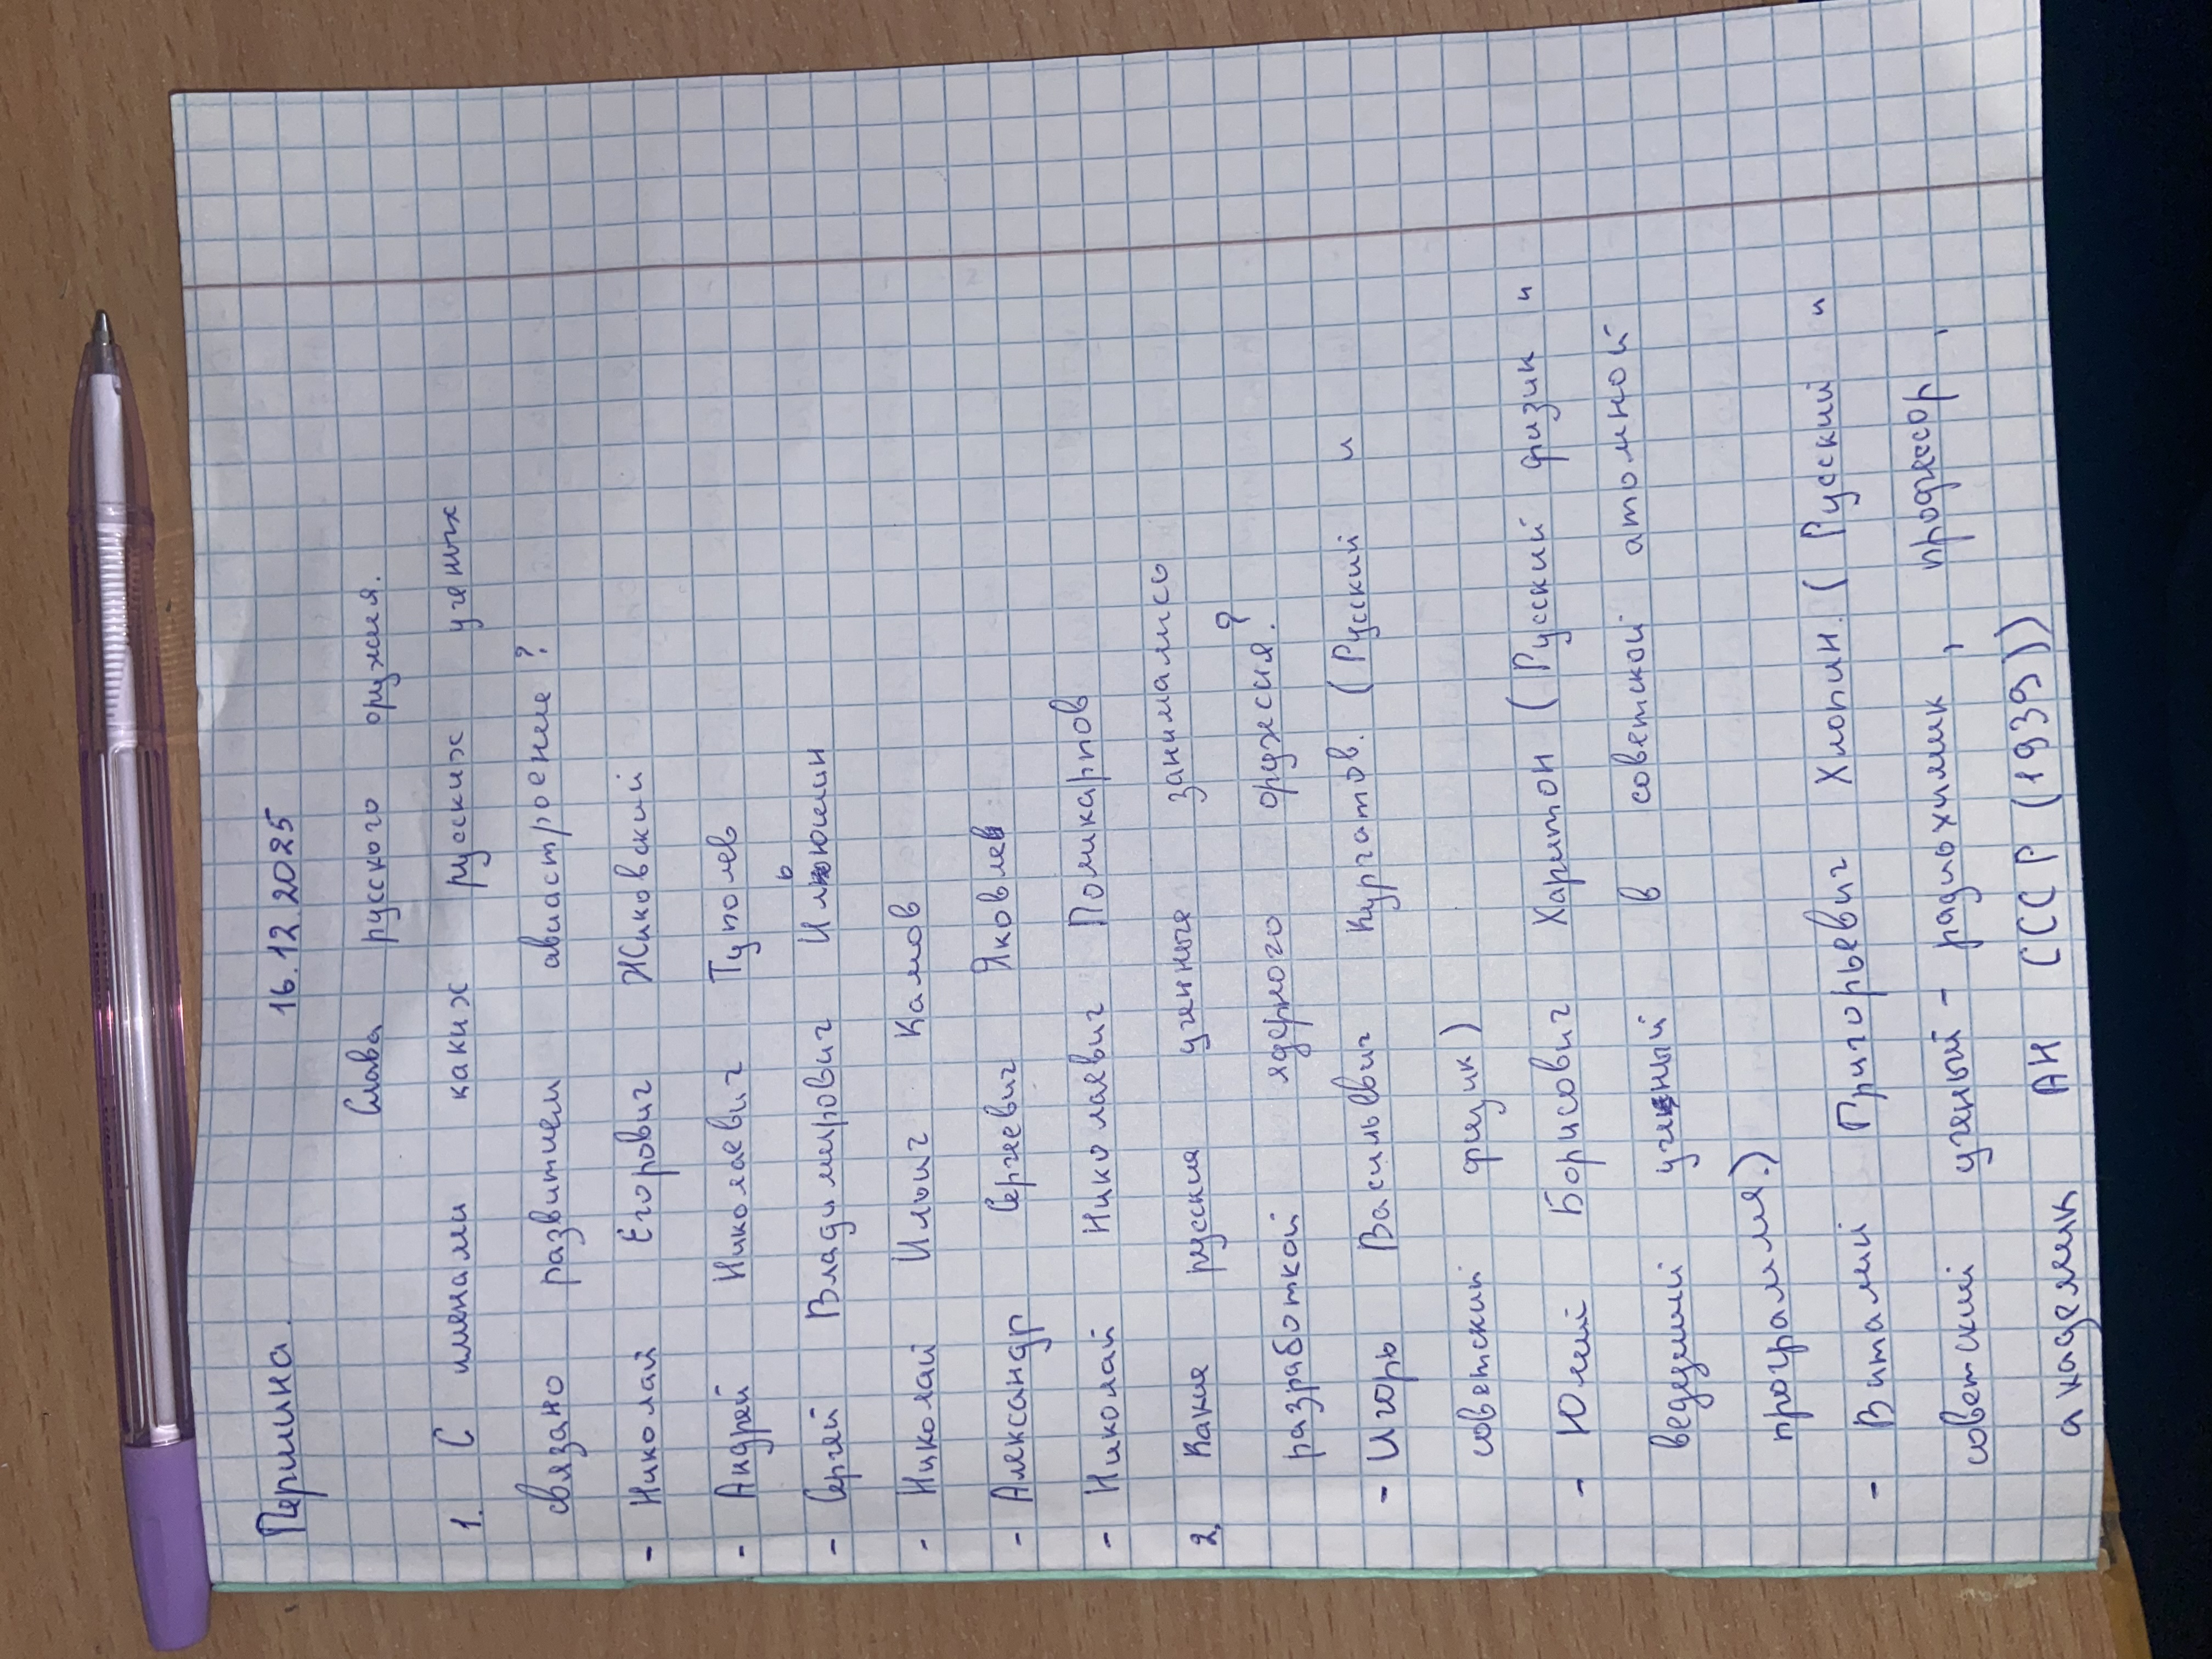 Першина. 16.12.2025
Слава русского оружия.
1. С именами каких русских ученых
связано развитием авиастроение?
- Николай Егорович Жиковский
- Андрей Николаевич Туполев
- Сергей Владимирович Ильюшин
- Николай Ильич Камов
- Александр Сергеевич Яковлев
- Николай Николаевич Поликарпов
2. Какие русские ученные занимались
разработкой ядерного оружсия.?
- Игорь Васильевич Курчатов. (Русский и
советский физик)
- Юлий Борисович Харитон (Русский физик и
ведущий учёный в советской атомной
программе.)
- Виталий Григорьевич Хлопин. (Русский и
советский учёный - радиохимик, профессор,
академик АН СССР (1939))